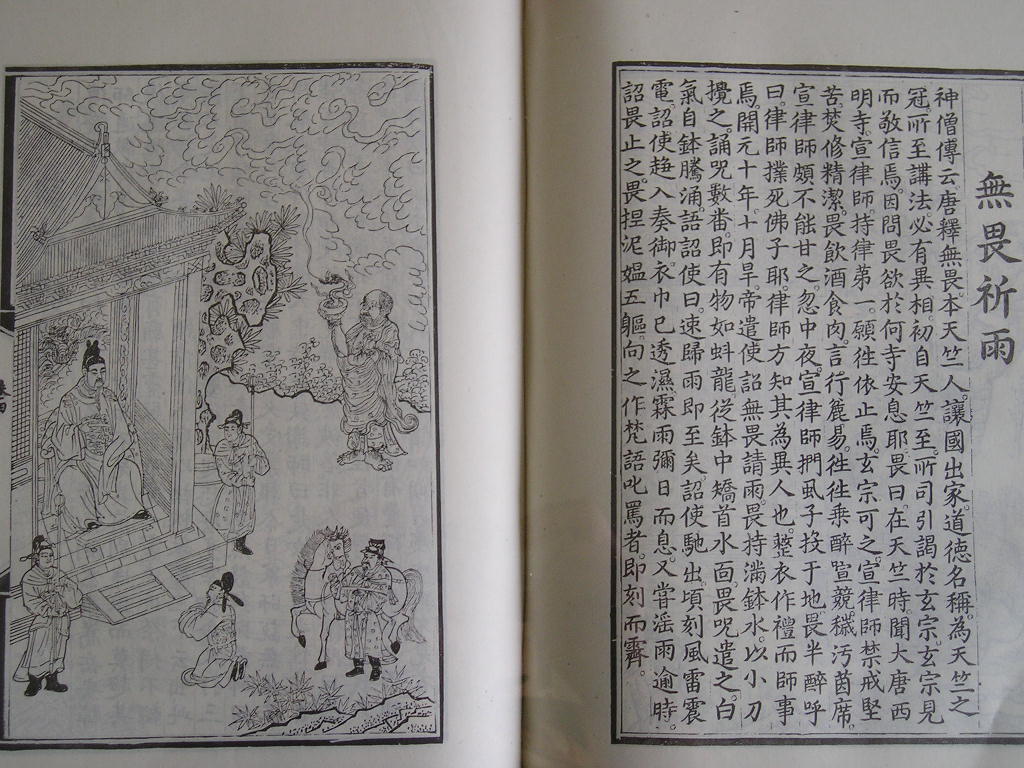 無畏祈雨
神僧傳云。唐釋無畏。本天竺人。讓國出家。道德名稱。為天竺之
冠。所至講法。必有異相。初自天竺至。所司引謁於玄宗。玄宗見
而敬信焉。因問畏欲於何寺安息耶。畏曰。在天竺時。聞大唐西
明寺。宣律師。持律第一。願往依止焉。玄宗可之。宣律師禁戒堅
苦。焚修精潔。畏飲酒食肉。言行麤易。往往乘醉喧競。穢污茵席。
宣律師頗不能甘之。忽中夜。宣律師捫虱子投于地。畏半醉呼
曰。律師撲死佛子耶。律師方知其為異人也。整衣作禮而師事
焉。開元十年十月旱。帝遣使詔無畏請雨。畏持滿鉢水。以小刀
攪之。誦呪數番。即有物如蚪龍。從鉢中矯首水面。畏呪遣之。白
氣自鉢騰涌。語詔使曰。速歸。雨即至矣。詔使馳出。頃刻風雷震
電。詔使趨入奏。御衣巾已透濕。霖雨彌日而息。又嘗淫雨逾時。
詔畏止之。畏捏泥媼五軀。向之作梵語叱罵者。即刻而霽。